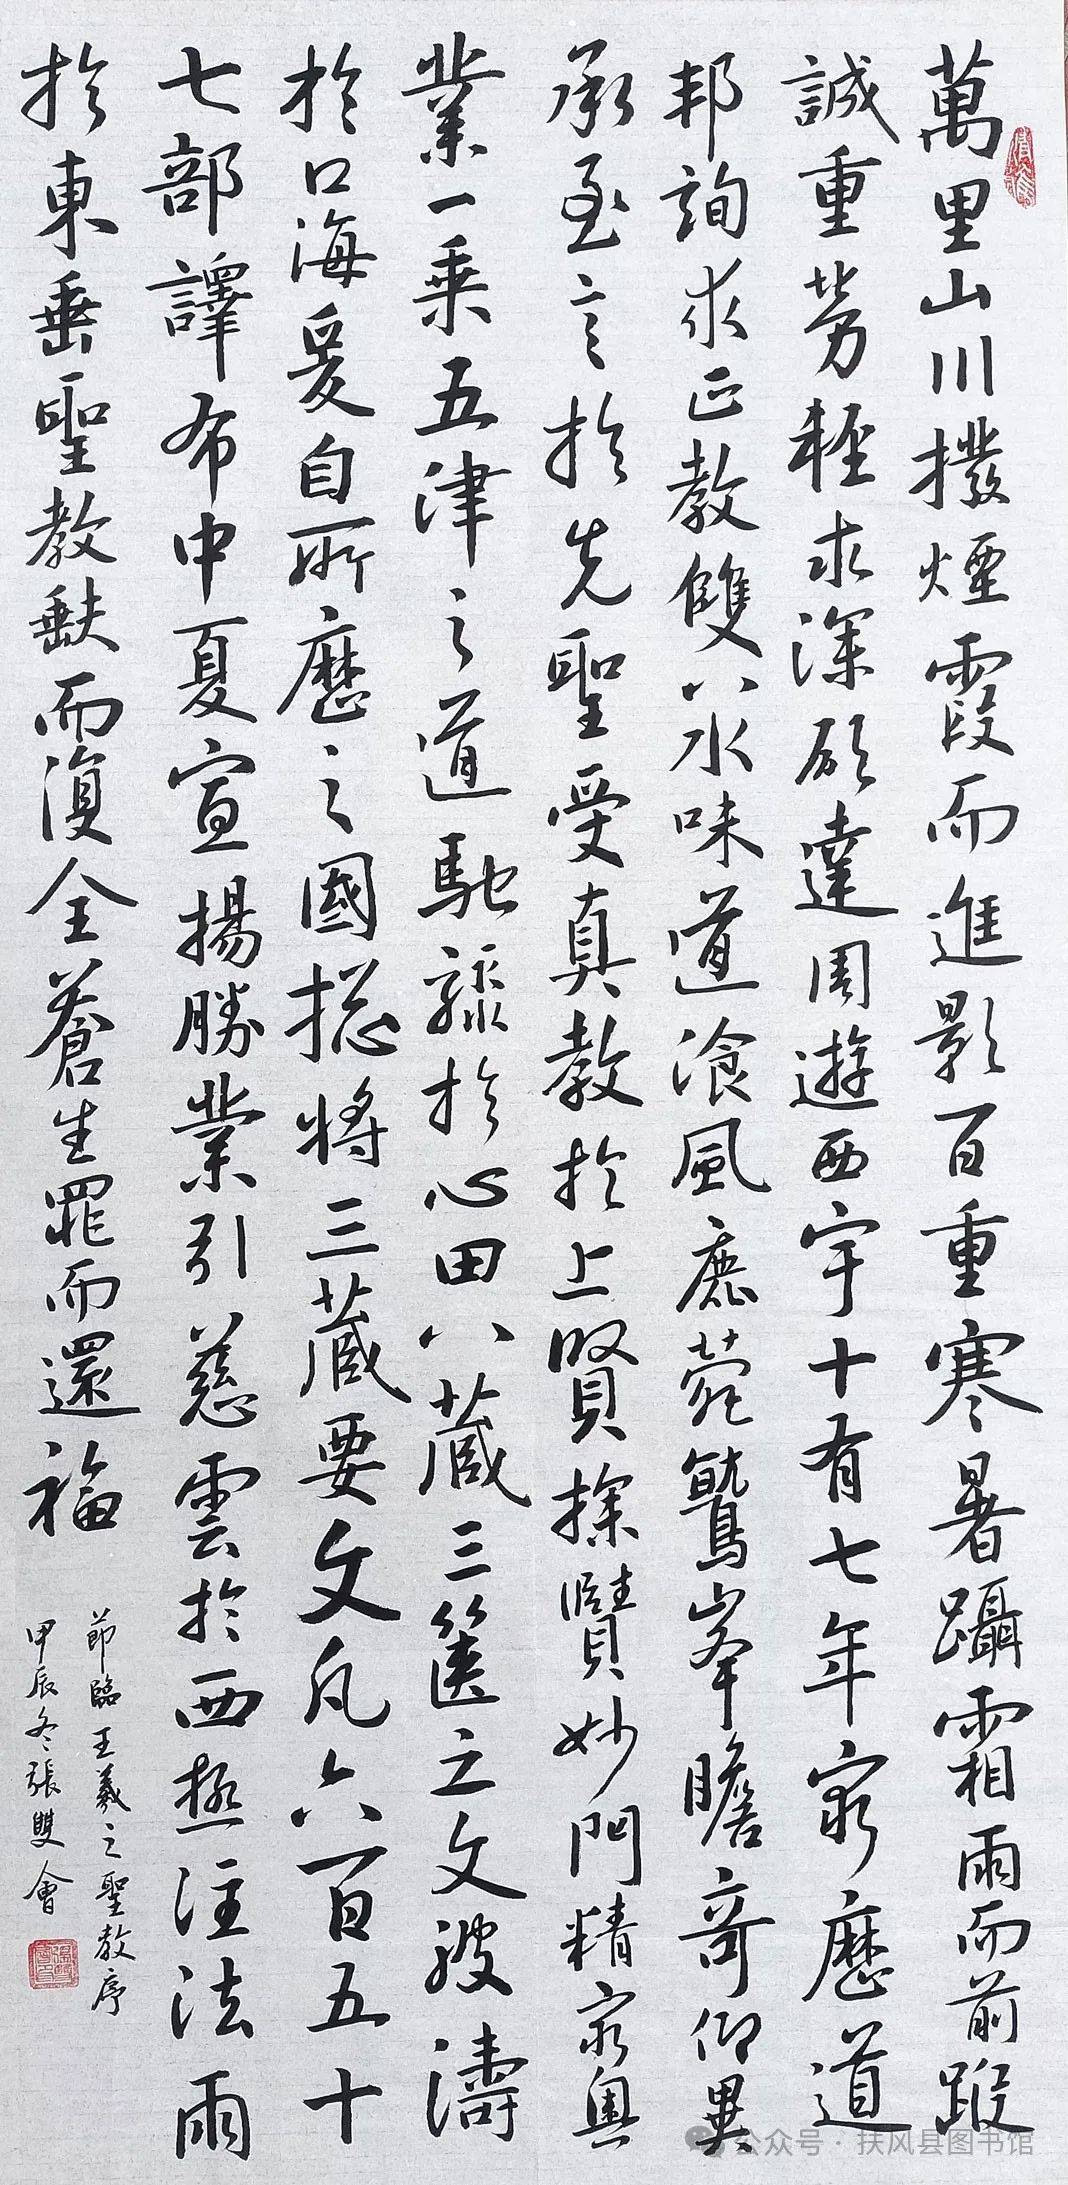 萬里山川撥煙霞而進影百重寒暑躡霜雨而前蹤
誠重勞輕求深願達周遊西宇十有七年窮歷道
邦詢求正教雙八水味道飡風鹿菀鷲峯瞻奇仰異
承至言於先聖受真教於上賢探賾妙門精窮奧
業一乘五津之道馳驟於心田八藏三篋之文波濤
於口海爰自所歷之國揔將三藏要文凡六百五十
七部譯布中夏宣揚勝業引慈雲於西極注法雨
於東垂聖教缺而復全蒼生罪而還福
節臨王羲之聖教序
甲辰冬張雙會
公众号·扶风县图书馆